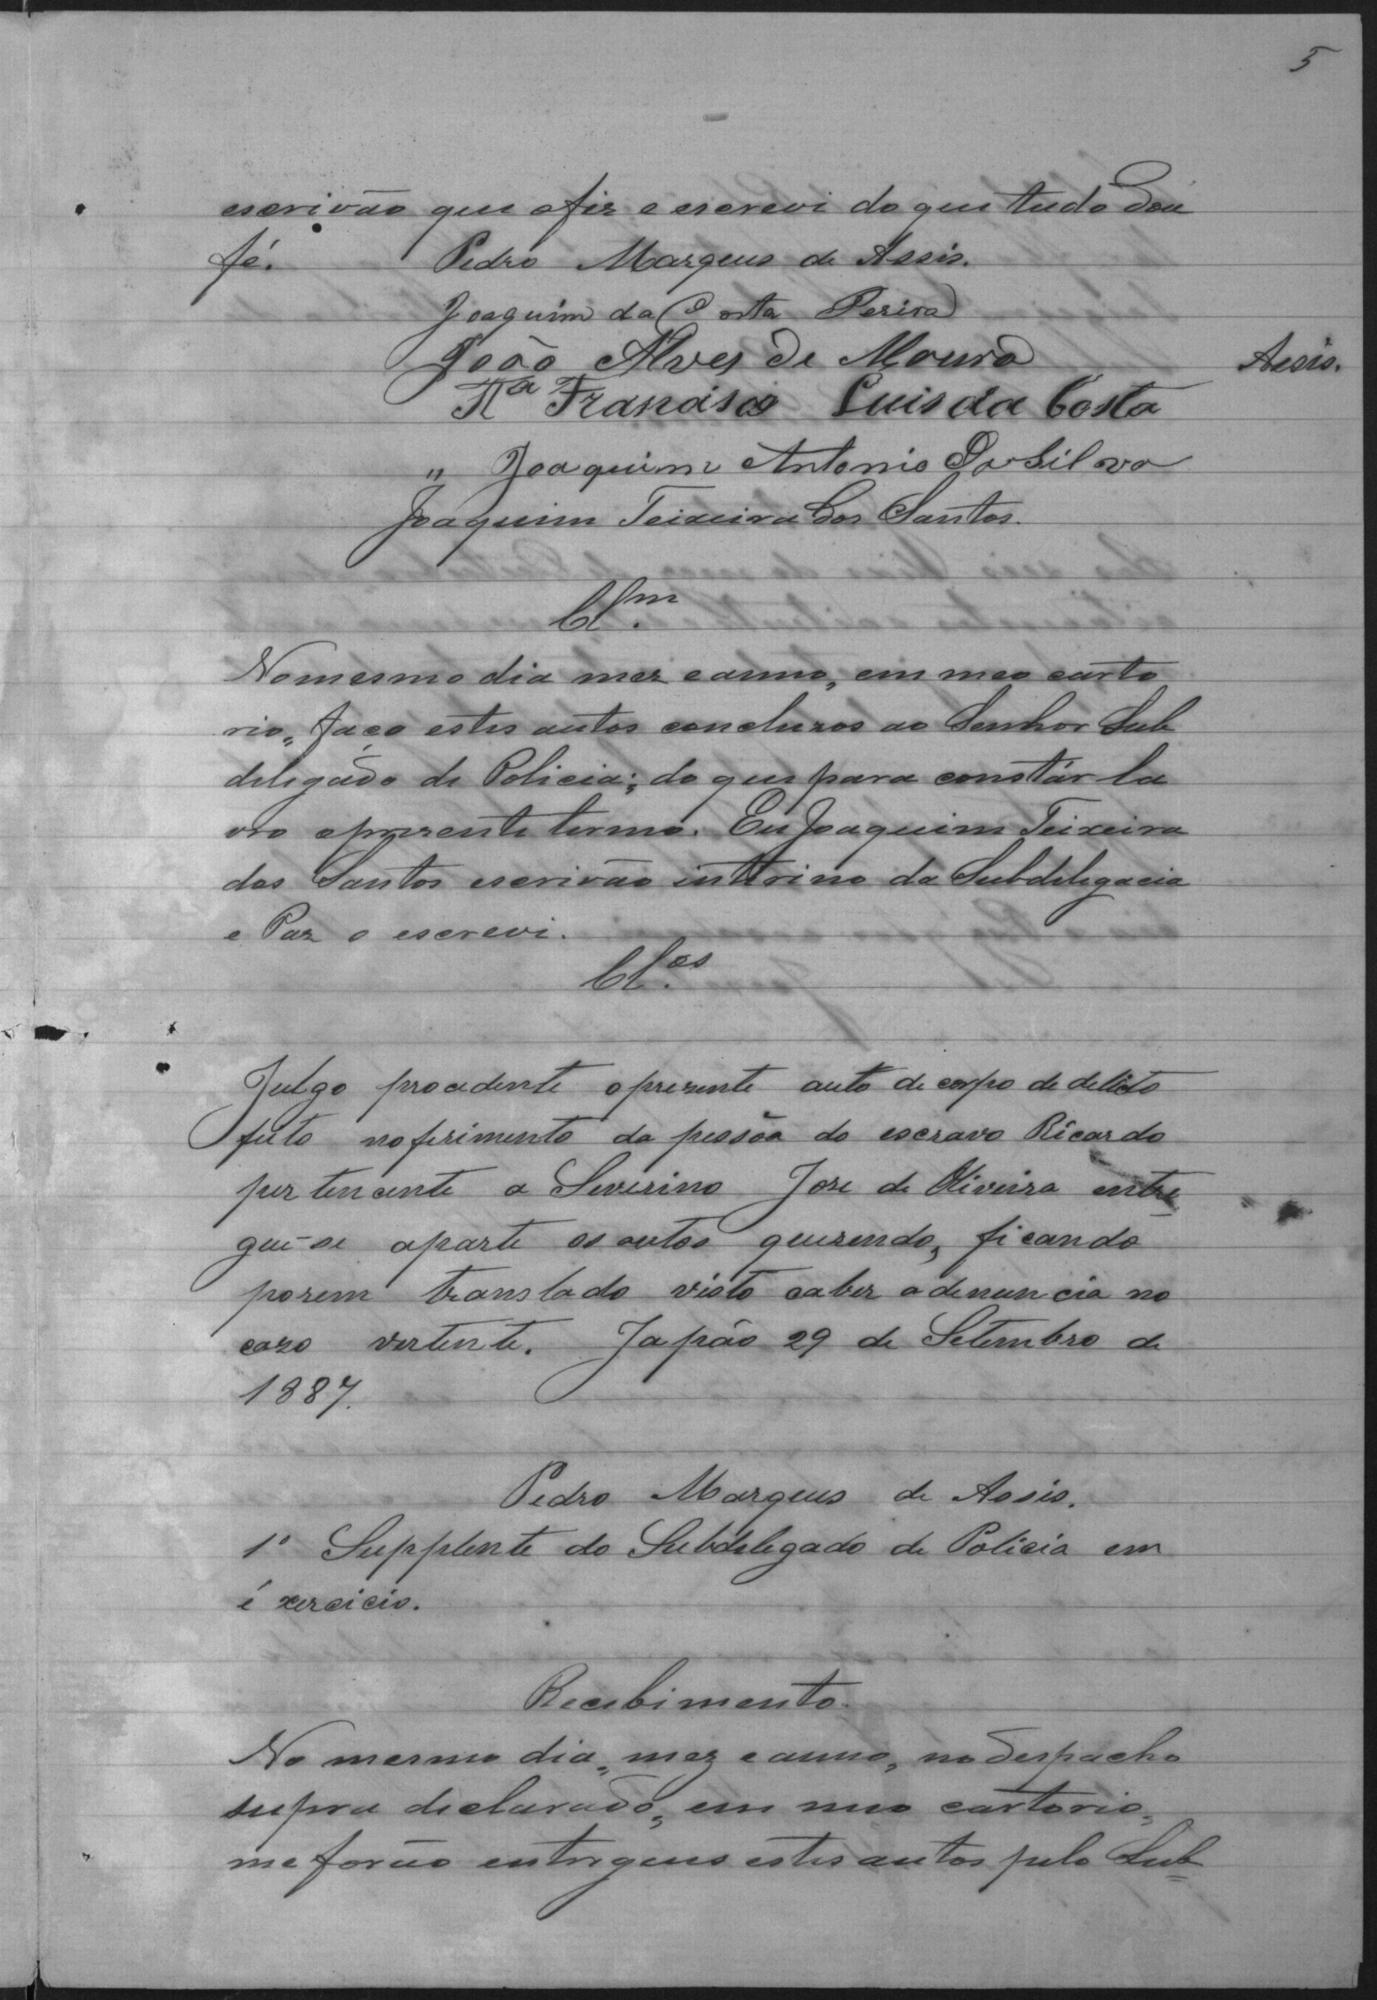 5
escrivão que o fiz e escrevi do que tudo dou
fé. Pedro Marques de Assis.
Joaquim da Costa Perira
João Alves de Moura
Assis.
Tª Francisco Luis da Costa
„ Joaquim Antonio Da Silva
Joaquim Teixeira dos Santos.
Cl.m
No mesmo dia mez e anno, em meo carto
rio, faço estes autos concluzos ao Senhor Sub
delegádo de Policia; do que para constár la
vro o prezente termo. Eu Joaquim Teixeira
dos Santos escrivão interino da Subdelegacia
e Paz o escrevi.
Cl.os
Julgo procedente o prezente auto de corpo de delicto
feito no ferimento da pessõa do escravo Ricardo
pertencente a Severino Jose de Oliveira entre
gue-se aparte os autos querendo, ficando
porem translado visto caber a denuncia no
cazo vertente. Japão 29 de Setembro de
1887.
Pedro Marques de Assis.
1º Supplente do Subdelegado de Policia em
éxercicio.
Recebimento.
No mesmo dia, mez e anno, no despacho
supra declarado, em meo cartorio,
me forão entregues estes autos pelo Sub